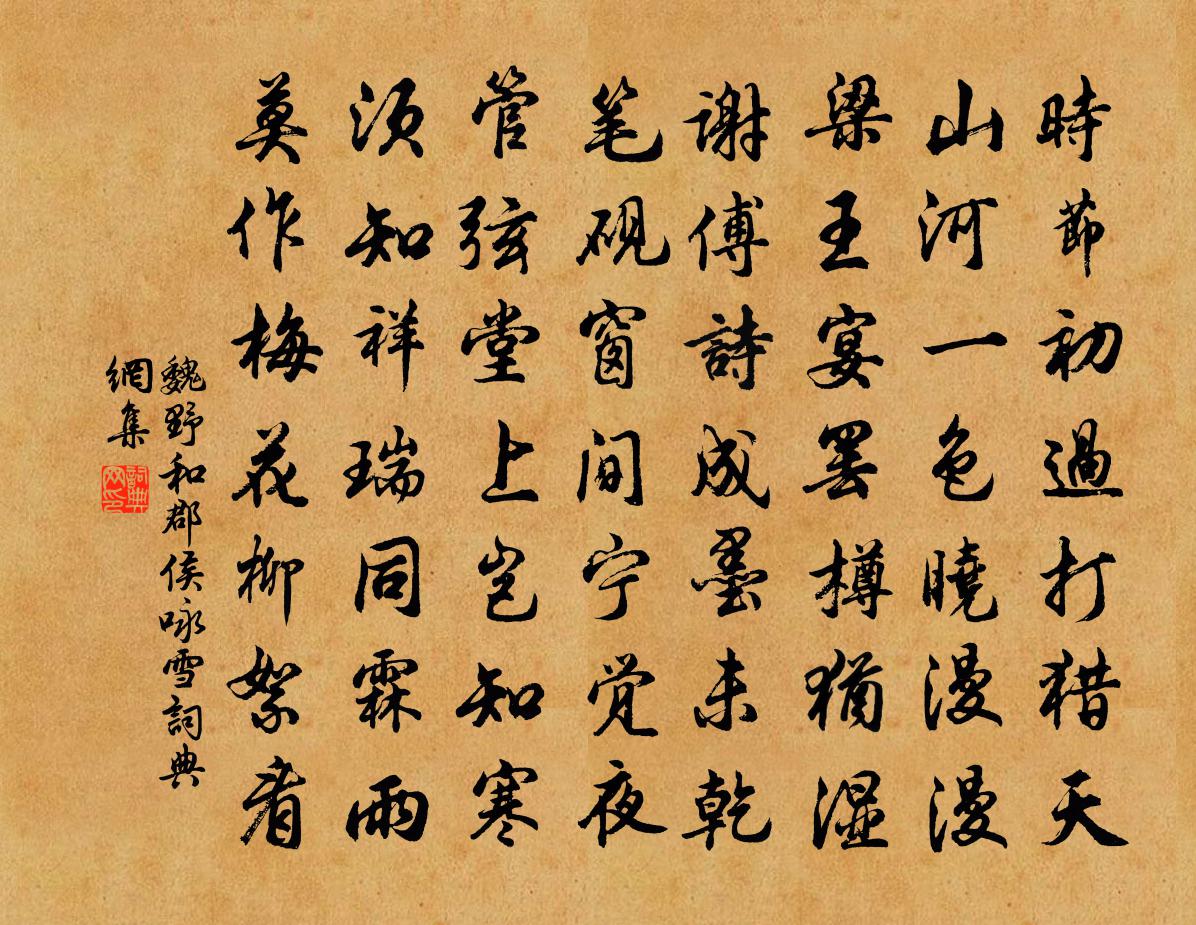 時節初過打猎天
山河一色曉漫漫
梁王宴罢樽猶湿
謝傅詩成墨未乾
笔硯窗间宁觉夜
管弦堂上岂知寒
须知祥瑞同霖雨
莫作梅花柳絮看
魏野和郡侯咏雪詞典
網集
詞典网印